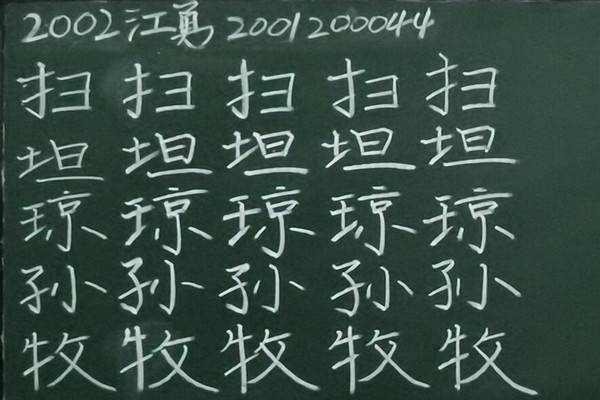 2002江勇 2001200044
扫 扫 扫 扫 扫
坦 坦 坦 坦 坦
琼 琼 琼 琼 琼
孙 孙 孙 孙 孙
牧 牧 牧 牧 牧